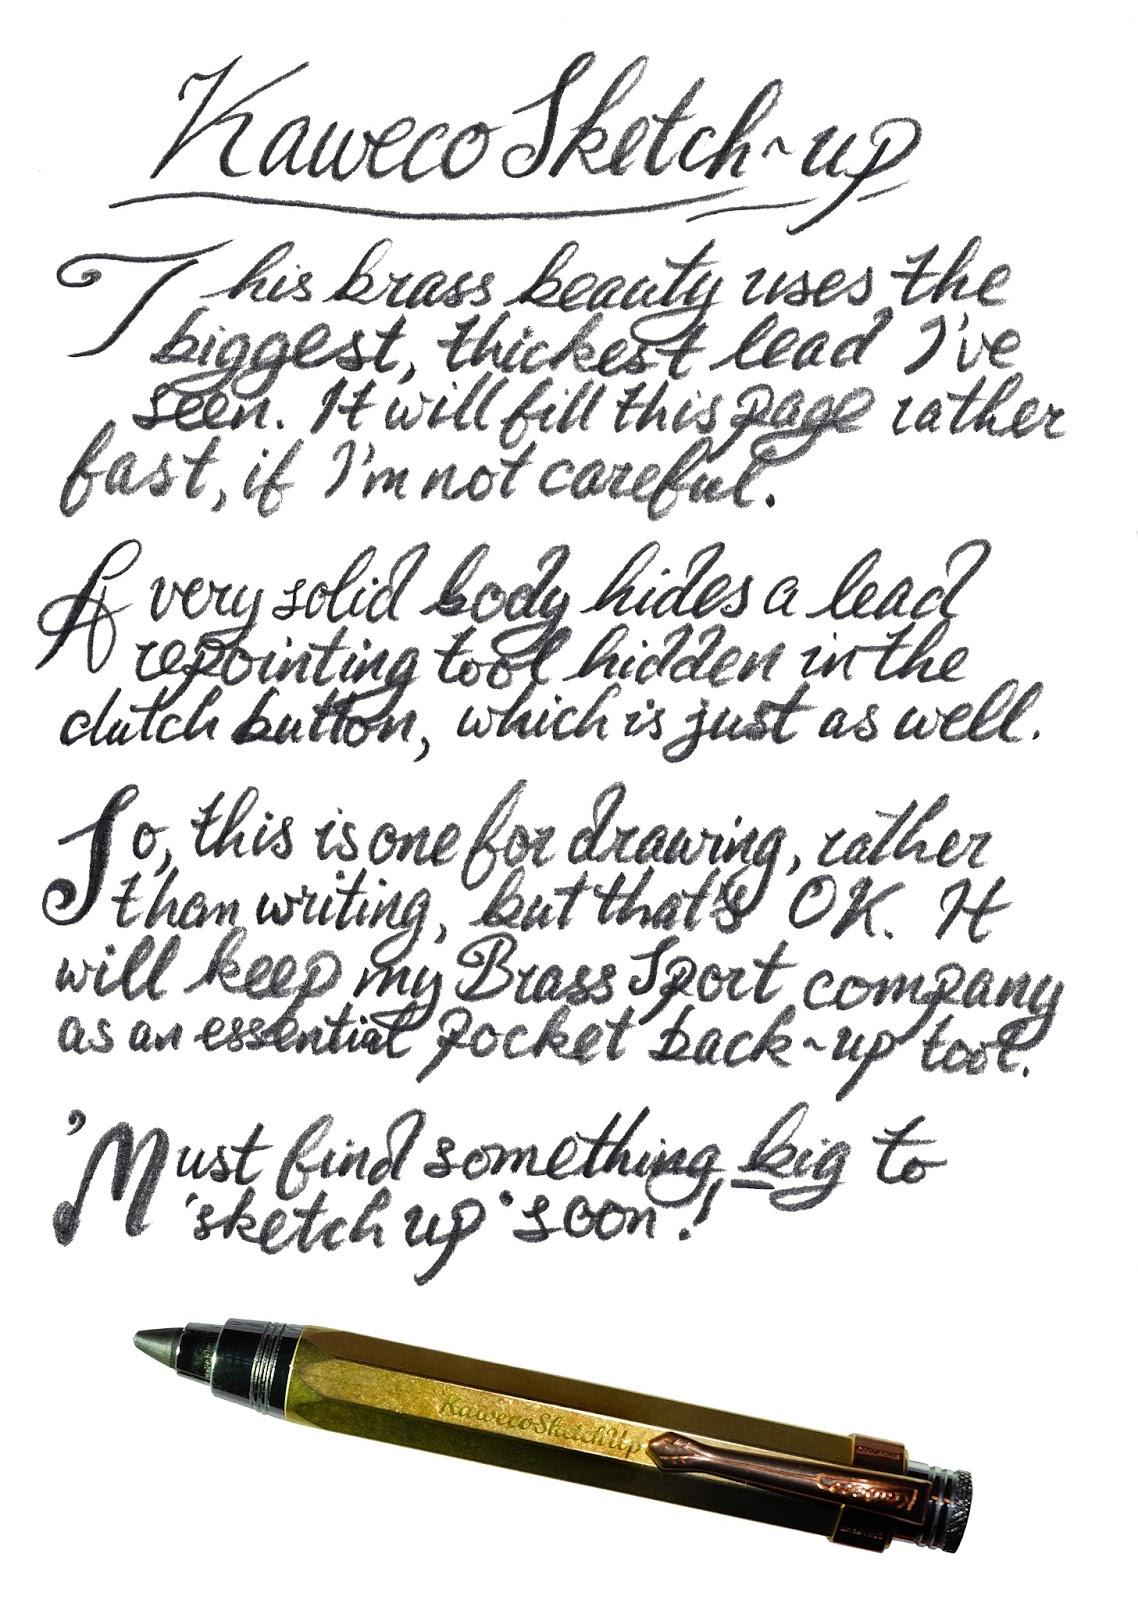 Kaweco Sketch~up
This brass beauty uses the
biggest, thickest lead I've
seen. It will fill this page rather
fast, if I'm not careful.
A very solid body hides a lead
repointing tool hidden in the
clutch button, which is just as well.
So, this is one for drawing, rather
than writing, but that's OK. It
will keep my Brass Sport company
as an essential pocket back~up tool.
'Must find something big to
'sketch up' soon!
KawecoSketchUp
Kaweco